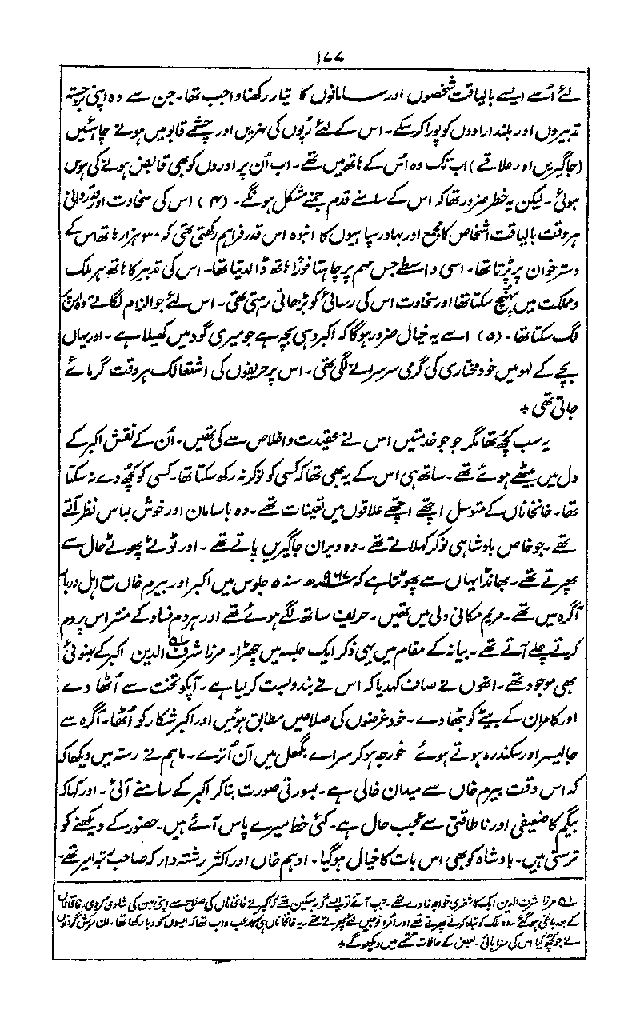 ۱۷۷
لئے اُسے ایسے بالیاقت شخصوں اور سامانوں کا تیار رکھنا واجب تھا۔ جن سے وہ اپنی برجستہ
تدبیروں اور بلند ارادوں کو پورا کر سکے۔ اس کے لئے زروں کی نہریں اور چشمے قابو میں ہونے چاہئیں
(جاگیریں اور علاقے) اب تک وہ اس کے ہاتھ میں تھے۔ اب اُن پر اوروں کو بھی قابض ہونے کی ہوس
ہوئی۔ لیکن یہ خطر ضرور تھا کہ اس کے سامنے قدم جمنے مشکل ہونگے۔ (۴) اس کی سخاوت اور قدردانی
ہر وقت بالیاقت اشخاص کا مجمع اور بہادر سپاہیوں کا انبوہ اس قدر فراہم رکھتی تھی کہ ۳۰ ہزار ہاتھ اس کے
دسترخوان پر پڑتا تھا۔ اسی واسطے جس مہم پر چاہتا فوراً ہاتھ ڈال دیتا تھا۔ اس کی تدبیر کا ہاتھ ہر ملک
و مملکت میں پہنچ سکتا تھا اور سخاوت اس کی رسائی کو بڑھاتی رہتی تھی۔ اس لئے جو الزام لگاتے وہ اس پر
لگ سکتا تھا۔ (۵) اسے یہ خیال ضرور ہوگا کہ اکبر وہی بچہ ہے جو میری گود میں کھیلا ہے۔ اور یہاں
بچے کے لہو میں خود مختاری کی گرمی سرسرانے لگی تھی۔ اس پر حریفوں کی اشتعالک ہر وقت گرمائے
جاتی تھی ٭
یہ سب کچھ تھا مگر جو جو خدمتیں اس نے عقیدت و اخلاص سے کی تھیں۔ اُن کے نقش اکبر کے
دل میں بیٹھے ہوئے تھے۔ ساتھ ہی اس کے یہ بھی تھا کہ کسی کو نوکر نہ رکھ سکتا تھا۔ کسی کو کچھ دے نہ سکتا
تھا۔ خانخاناں کے متوسل اچھے اچھے علاقوں میں تعینات تھے۔ وہ باسامان اور خوش لباس نظر آتے
تھے۔ جو خاص بادشاہی نوکر کہلاتے تھے۔ وہ ویران جاگیریں پاتے تھے۔ اور ٹوٹے پھوٹے حال سے
پھرتے تھے۔ بھانڈا یہاں سے پھوٹتا ہے کہ ۹۶۷ھ سنہ ۵ جلوس میں اکبر اور بیرم خاں مع اہل دربار
آگرہ میں تھے۔ مریم مکانی دلی میں تھیں۔ حریف ساتھ لگے ہوئے تھے اور ہر دم فساد کے منتر اس پر دم
کرتے چلے آتے تھے۔ بیانہ کے مقام میں یہی ذکر ایک جلسہ میں چھڑا۔ مرزا شرف الدین اکبر کے بہنوئی
بھی موجود تھے۔ انھوں نے صاف کہدیا کہ اس نے بندوبست کر لیا ہے۔ آپ کو تخت سے اُٹھا دے
اور کامران کے بیٹے کو بٹھا دے۔ خودغرضوں کی صلاحیں مطابق ہوئیں اور اکبر شکار کو اُٹھا۔ آگرہ سے
جالیسر اور سکندرہ ہوتے ہوئے خورجہ ہو کر سرائے بگھل میں آن اُترے۔ ماہم نے رستہ میں دیکھا کہ
کہ اس وقت بیرم خاں سے میدان خالی ہے۔ بسورتی صورت بنا کر اکبر کے سامنے آئی۔ اور کہا کہ
بیگم کا ضعیفی اور ناطاقتی سے عجیب حال ہے۔ کئی خط میرے پاس آئے ہیں۔ حضور کے دیکھنے کو
ترستی ہیں۔ بادشاہ کو بھی اس بات کا خیال ہوگیا۔ ادہم خاں اور اکثر رشتہ دار کہ صاحب تدبیر تھے